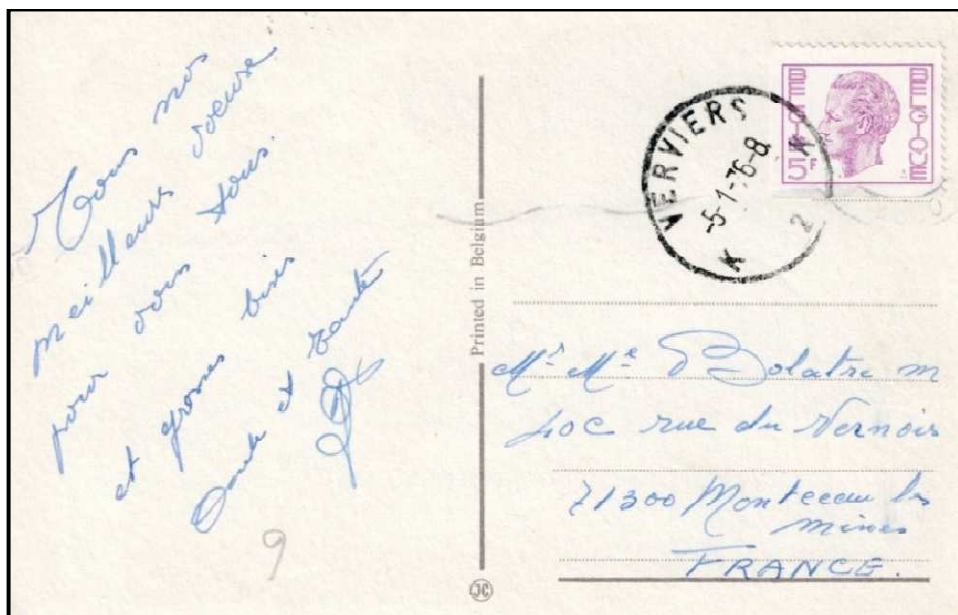 Tous nos
meilleurs voeux
pour vous tous.
et grosses bises
Oncle et Tante
9
Printed in Belgium
JC
VERVIERS
-5-1-76-8
K 2 K
BELGIE
BELGIQUE
5F
Mr Me Bolatre m
40c rue du Vernois
71300 Montceau les
mines
FRANCE.